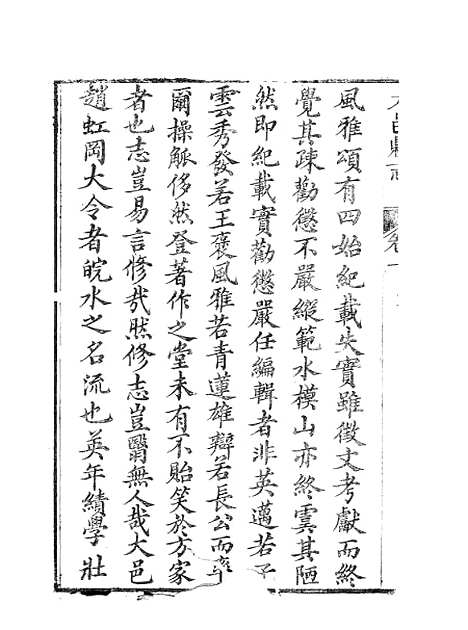 大邑縣志 卷
風雅頌有四始紀載失實雖徵文考獻而終
覺其疎勸懲不嚴縱範水模山亦終虞其陋
然即紀載實勸懲嚴任編輯者非英邁若子
雲秀發若王褒風雅若青蓮雄辯若長公而率
爾操觚侈然登著作之堂未有不貽笑於方家
者也志豈易言修哉然修志豈翳無人哉大邑
趙虹岡大令者皖水之名流也英年績學壯